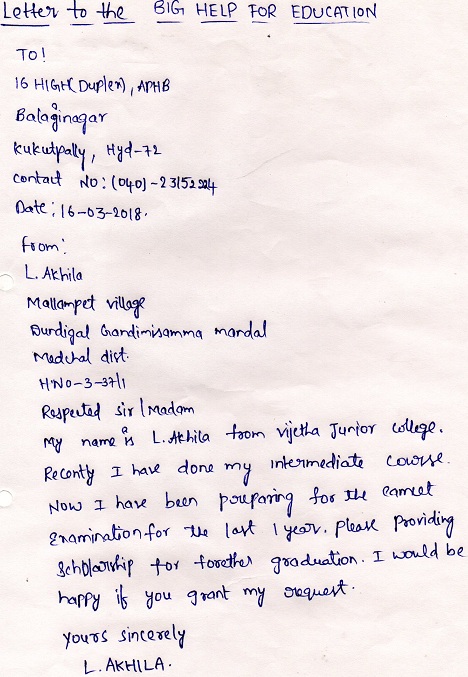 Letter to the BIG HELP FOR EDUCATION
TO!
16 HIGH(Duplex), APHB
Balaginagar
Kukutpally, Hyd-72
contact No: (040)-23152224
Date: 16-03-2018.
from:
L. Akhila
Mallampet village
Durdigal Gandimisamma mandal
Medchal dist.
H·NO-3-37/1
Respected sir/Madam
My name is L.Akhila from vijetha Junior college.
Recently I have done my intermediate course.
Now I have been preparing for the eamcet
Examination for the last 1 year. please providing
scholarship for forether graduation. I would be
happy if you grant my request.
yours sincerely
L.AKHILA.